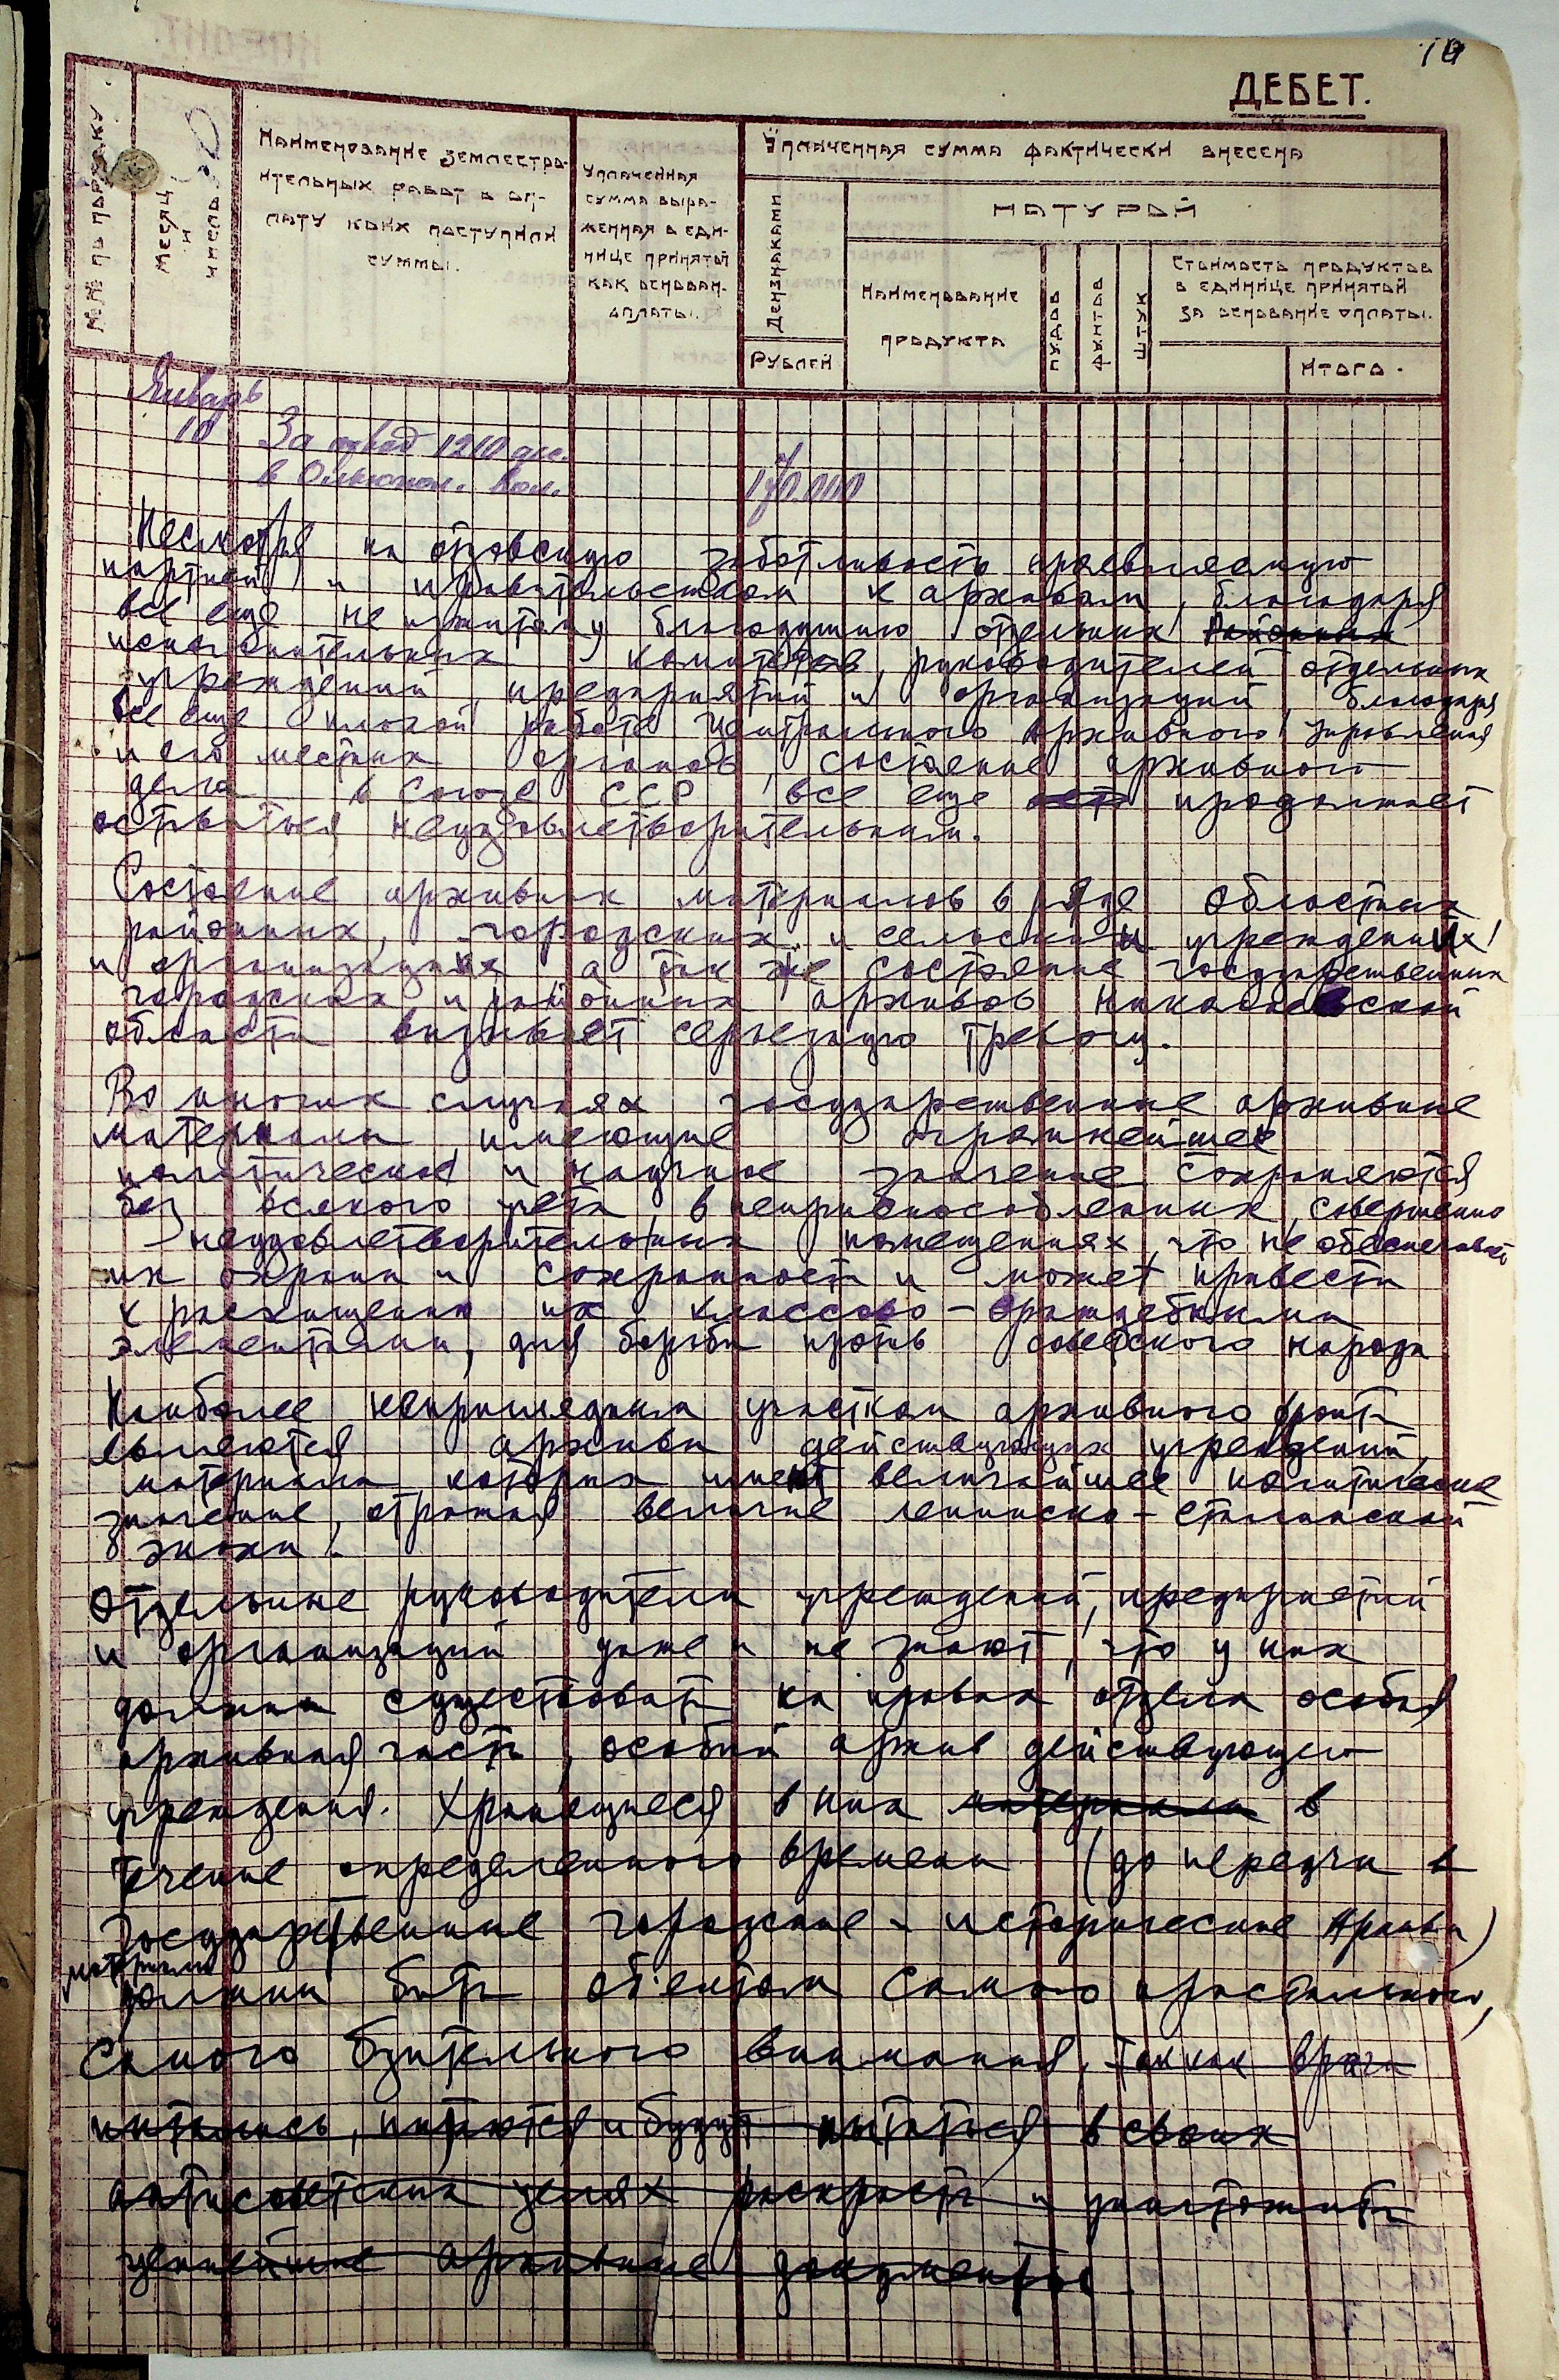 10
ДЕБЕТ.
№№ по порядку.
Месяц и число
Наименование землестро-
ительных работ в оп-
лату коих поступили
суммы.
Уплаченная
сумма выра-
женная в еди-
нице принятой
как основан.
оплаты.
Уплаченная сумма фактически внесена
Дензнаками
Рублей
натурой
Наименование
продукта
пудов
фунтов
штук
Стоимость продуктов
в единице принятой
за основание оплаты.
итого.
Январь
10 За отвод 1210 дес.
в вол. 170.000
Несмотря на отцовскую заботливость проявляемую
партией и правительством к архивам, благодаря
все еще не изжитому благодушию отдельных районных
исполнительных комитетов, руководителей отдельных
учреждений, предприятий и организаций, благодаря
все еще плохой работе Центрального Архивного Управления
и его местных органов, состояние архивного
дела в Союзе ССР все еще ост продолжает
оставаться неудовлетворительным.
Состояние архивных материалов в ряде областных
районных, городских и сельских учреждениях
и организациях а так же состояние государственных
городских и районных архивов Николаевской
области вызывает серьезную тревогу.
Во многих случаях государственные архивные
материалы имеющие огромнейшее
политическое и научное значение сохраняются
без всякого учета в неприспособленных, совершенно
неудовлетворительных помещениях, что не обеспечивает
их охраны и сохранности и может привести
к расхищению их классово-враждебными
элементами, для борьбы против советского народа
Наиболее неприглядным участком архивного фронта
являются архивы действующих учреждений,
материалы которых имеют величайшее политическое
значение, отражая величие ленинско-сталинской
эпохи.
Отдельные руководители учреждений, предприятий
и организаций даже и не знают, что у них
должны существовать на правах отдела особая
архивная часть, особый архив действующего
учреждения. Хранящиеся в них материалы в
течение определенного времени (до передачи в
Государственные городские - исторические Архивы)
материалы
должны быть об'ектом самого пристального,
самого бдительного внимания, так как враги
пытались, пытаются и будут пытаться в своих
антисоветских целях раскрасть и уничтожить
ценнейшие архивные документы.